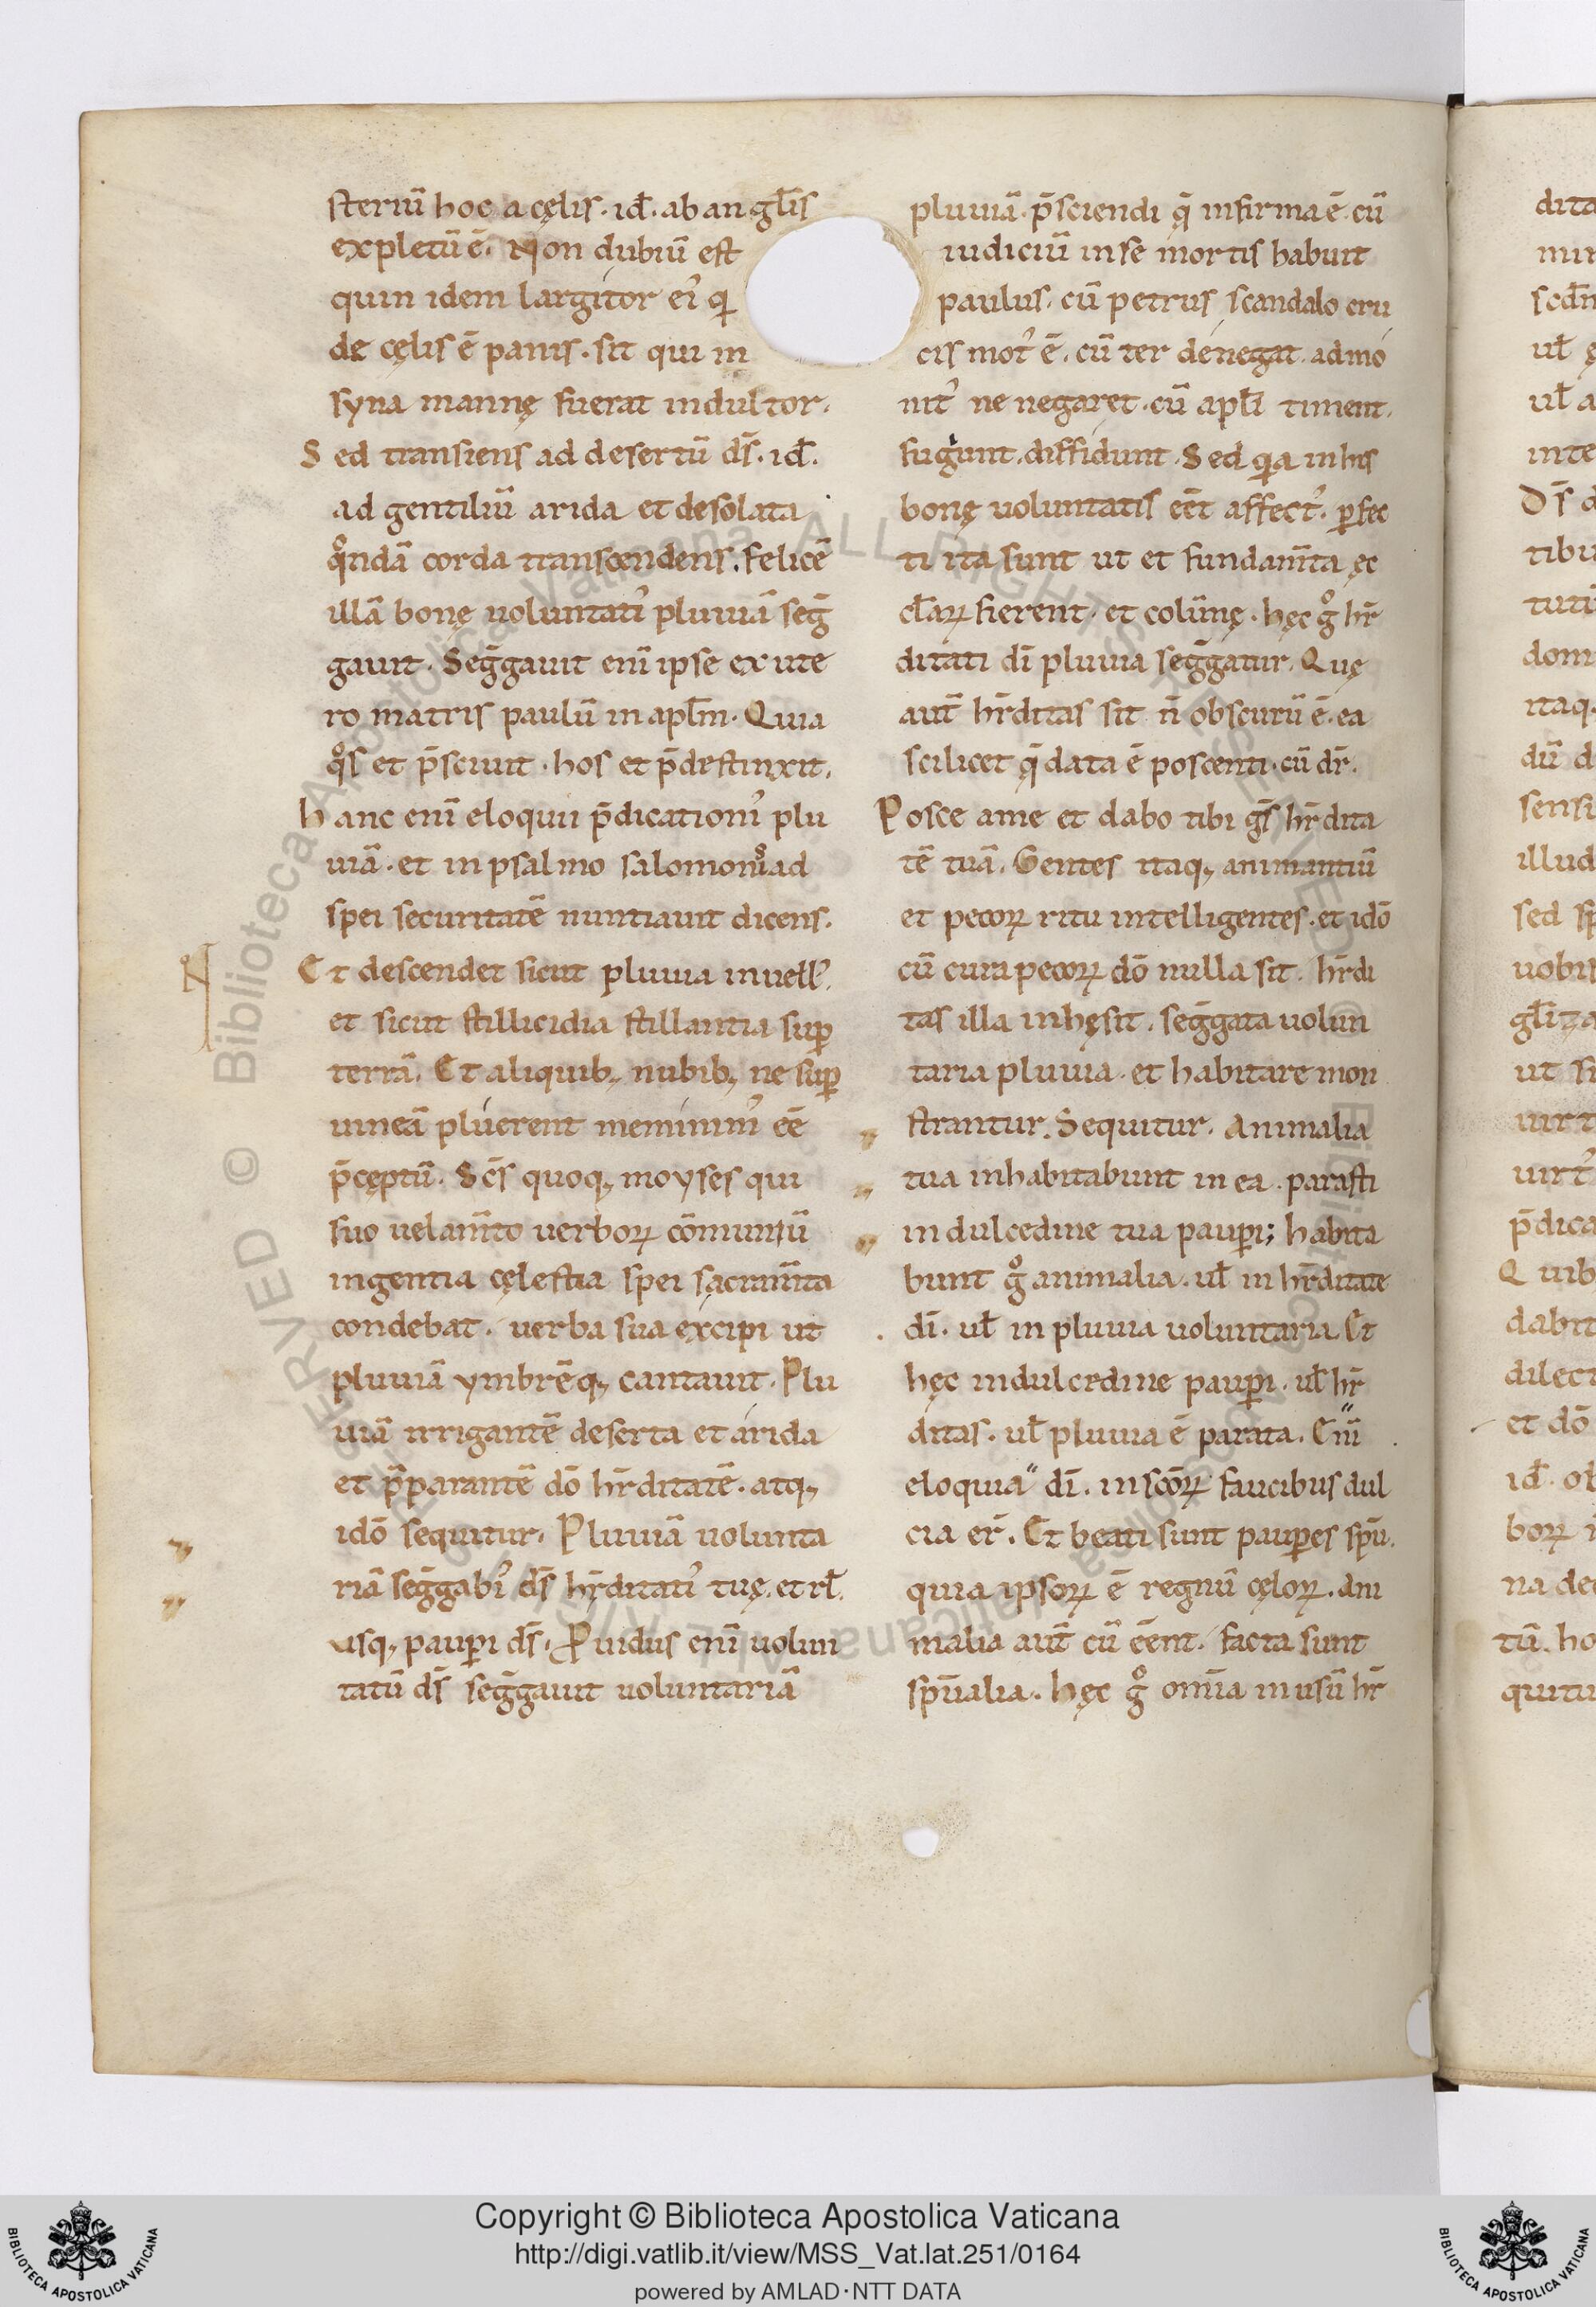 steriũ hoc a cęlis · id̃ · ab angl̃is
expletũ ẽ · Non dubiũ est
quin idem largitor ei᾽ qi
de cęlis ẽ panis · sit qui in
syna mannę fuerat indultor ·
Sed transiens ad desertũ dr̃ · id̃ ·
ad gentiliũ arida et desolata
qͦndã corda transcendens · felicẽ
illã bonę uoluntati᾽ pluuiã seg̃
gauit · Seg̃gauit eni᷈ ipse ex ute
ro matris paulũ in apl̃m · Quia
qͦs et p̃sciuit · hos et p̃destinauit ·
hanc eni᷈ eloquii p̃dicationi᾽ plu
uiã · et in psalmo salomoni᾽ ad
spei securitatẽ nuntiauit dicens ·
Et descendet sicut pluuia in uell᾽ ·
et sicut stillicidia stillantia suꝑ
terrã · Et aliquib; nubib; ne suꝑ
uineã pluerent meminim᾽ eẽ
p̃cęptũ · Sc̃s quoq; moyses qui
suo uelam̃to uerboꝝ cõmuniũ
ingentia cęlestia spei sacram̃ta
condebat · uerba sua excipi ut
pluuiã ymbrẽq; cantauit · Plu
uiã irrigantẽ deserta et arida
et p̃parantẽ dõ hr̃ditatẽ · atq;
idõ sequitur · Pluuiã uolunta
riã seg̃gabi᾽ ds̃ hr̃ditati᾽ tuę · et rl̃ ·
usq; pauꝑi ds̃ · Ꝓuidus eni᷈ uolun
tatũ ds̃ seg̃gauit uoluntariã
pluuiã · p̃sciendi q̃ infirma ẽ · cũ
iudiciũ in se mortis habuit
paulus · cũ petrus scandalo cru
cis mot᾽ ẽ · cũ ter denegat · admo
nit᾽ ne negaret · cũ apl̃i timent ·
fugiunt · diffidunt · Sed qia in his
bonę uoluntatis eẽt affect᾽ · ꝑfec
ti ita sunt ut et fundam̃ta ęc
cl̃aꝝ fierent · et colũnę · hęc gͦ hr̃
ditati di᷈ pluuia seg̃gatur · Quę
aut̃ hr̃ditas sit ñ obscurũ ẽ · ea
scilicet q̃ data ẽ poscenti · cũ dr̃ ·
Posce a me et dabo tibi gs̃ hr̃dita
tẽ tuã · Gentes itaq; animantiũ
et pecoꝝ ritu intelligentes · et idõ
cũ cura pecoꝝ dõ nulla sit · hr̃di
tas illa inhęsit · seg̃gata uolun
taria pluuia · et habitare mon
strantur · Sequitur · Animalia
tua inhabitabunt in ea · parasti
in dulcedine tua pauꝑi ; habita
bunt gͦ animalia · ul̃ in hr̃ditate
di᷈ · ul̃ in pluuia uoluntaria · Et
hęc in dulcedine pauꝑi · ul̃ hr̃
ditas · ul̃ pluuia ẽ parata · Cũ
eloquia di᷈ · in sc̃oꝝ faucibus dul
cia er̃ · Et beati sunt pauꝑes sp̃u ·
quia ipsoꝝ ẽ regnũ cęloꝝ · Ani
malia aut̃ cũ eẽnt · facta sunt
sp̃ualia · hęc gͦ om̃ia in usũ hr̃
Copyright © Biblioteca Apostolica Vaticana
http://digi.vatlib.it/view/MSS_Vat.lat.251/0164
powered by AMLAD·NTT DATA
BIBLIOTECA APOSTOLICA VATICANA
BIBLIOTECA APOSTOLICA VATICANA